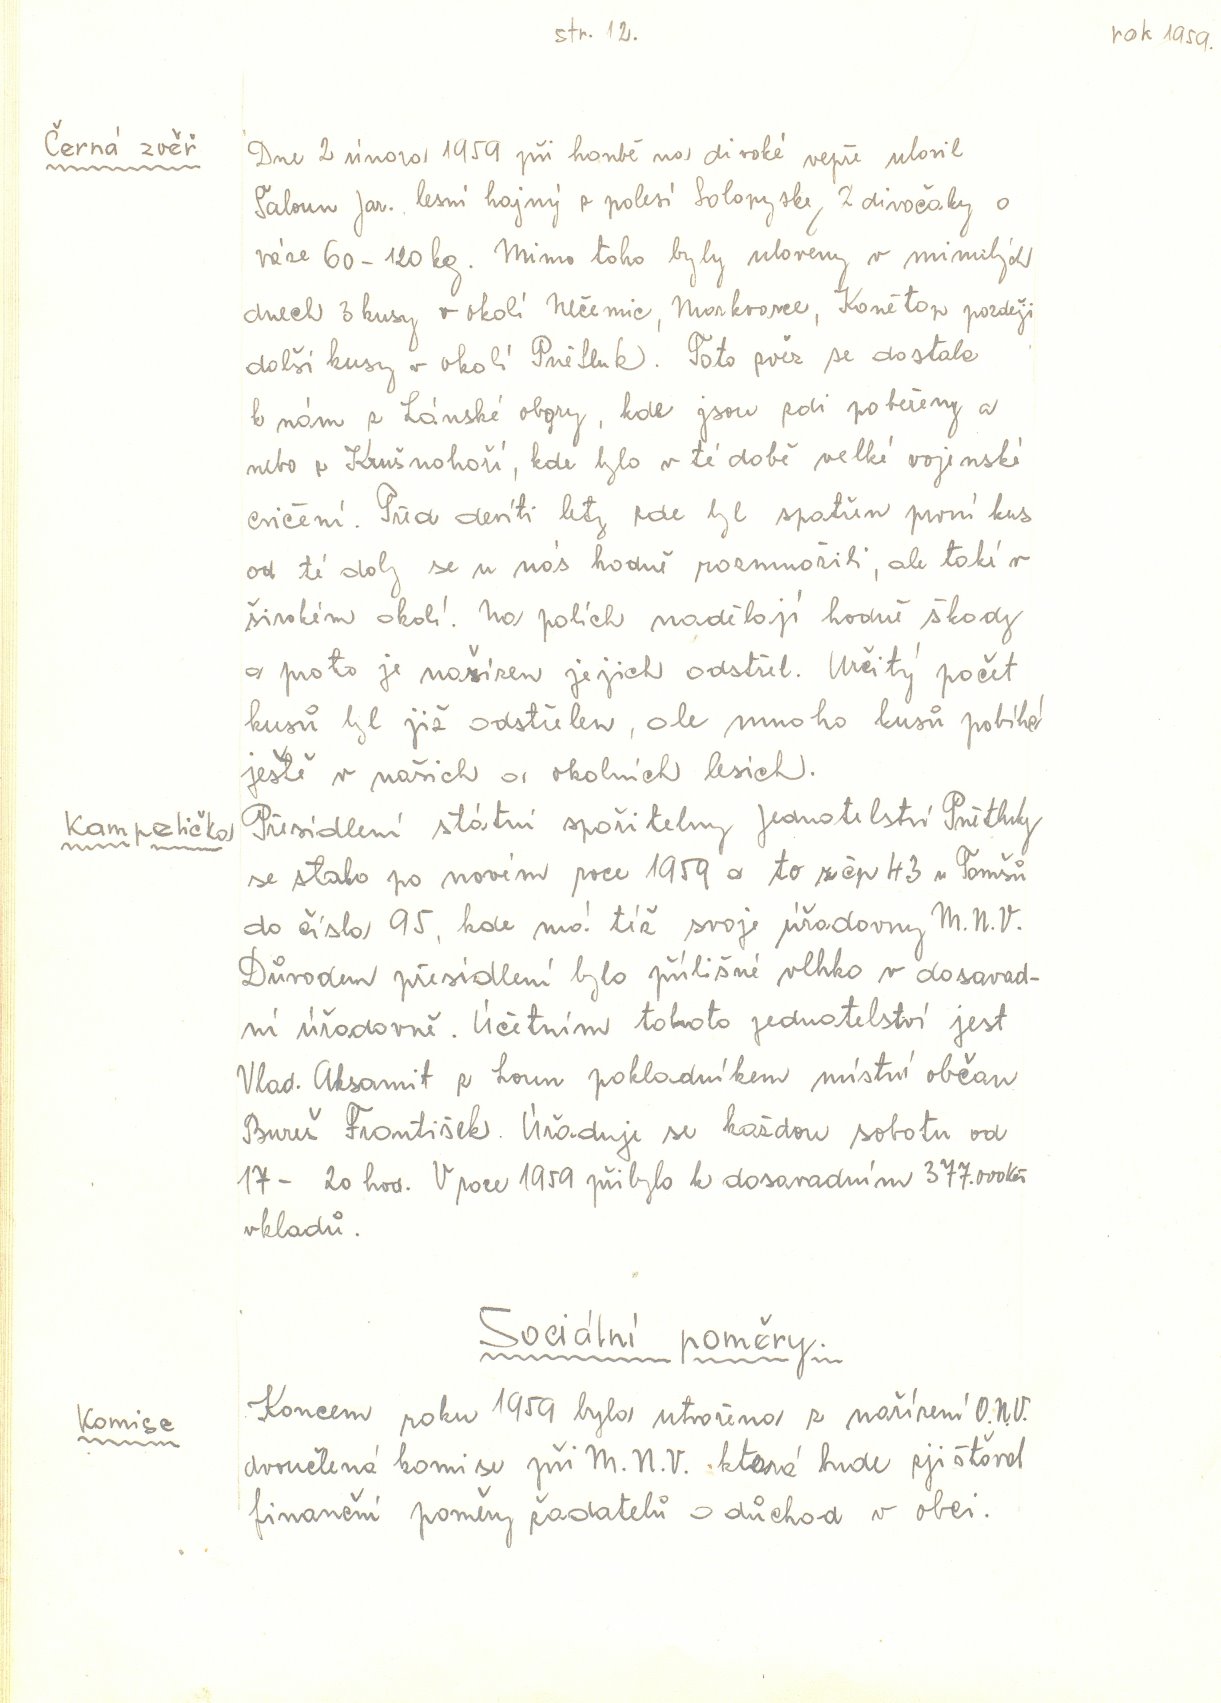 str. 12.
rok 1959.
Černá zvěř
Dne 2 února 1959 při honbě na divoké vepře ulovil
Šaloun Jar. lesní hajný z polesí Solopysky 2 divočáky o
váze 60 - 120 kg. Mimo toho byly uloveny v minulých
dnech 3 kusy v okolí Nečemic, Markvarce, Konětop později
další kusy v okolí Pnětluk. Tato zvěř se dostala
k nám z Lánské obory, kde jsou zdi pobořeny a
nebo z Krušnohoří, kde bylo v té době velké vojenské
cvičení. Před devíti lety zde byl spatřen první kus
od té doby se u nás hodně rozmnožili, ale také v
širokém okolí. Na polích nadělají hodně škody
a proto je nařízen jejich odstřel. Určitý počet
kusů byl již odstřelen, ale mnoho kusů pobíhá
ještě v našich a okolních lesích.
Kampelička
Přesídlení státní spořitelny jednatelství Pnětluky
se stalo po novém roce 1959 a to z čp 43 u Tomšů
do čísla 95, kde má též svoje úřadovny M.N.V.
Důvodem přesídlení bylo přílišné vlhko v dosavad-
ní úřadovně. Účetním tohoto jednatelství jest
Vlad. Aksamit z Loun pokladníkem místní občan
Bureš František. Úřaduje se každou sobotu od
17 - 20 hod. V roce 1959 přibylo k dosavadním 377.000 Kčs
vkladů.
Sociální poměry.
Komise
Koncem roku 1959 byla utvořena z nařízení O.N.V.
dvoučlená komise při M.N.V. která bude zjišťovat
finanční poměry žadatelů o důchod v obci.